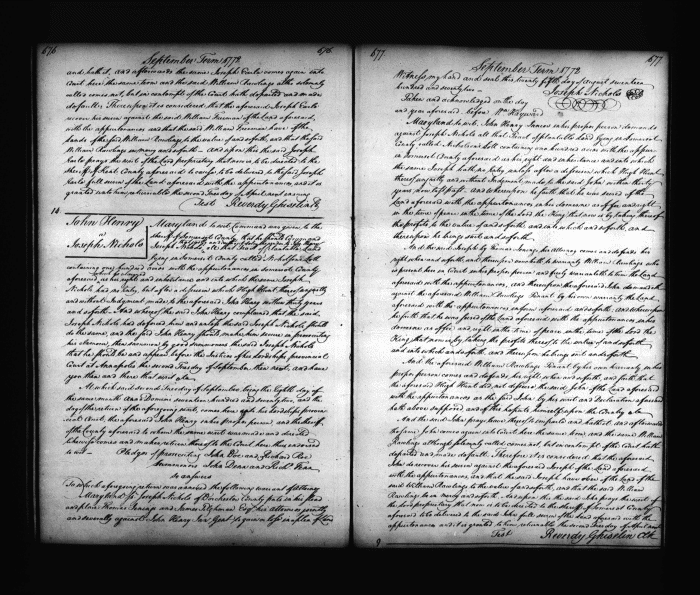 676
676
September Term 1772
and hath it, and afterwards the same Joseph Earle comes again into
Court here the same term and the said William Rawlings at the solemnly
called comes not, but in contempt of the Court hath departed and made
default. Therefore it is considered that the aforesaid Joseph Earle
recover his seisin against the said William Freeman of the Land aforesaid,
with the appurtenances and that the said William Freeman have of the
Lands of the said William Rawlings to the value of and so forth, and that the said
William Rawlings in mercy and so forth - and upon this the said Joseph
Earle prays the writ of the Lord proprietary that now is to be directed to the
sheriff of Kent County aforesaid to cause to be delivered to the said Joseph
Earle full seisin of the Land aforesaid with the appurtenances, and it is
granted unto him returnable the second Tuesday of April next ensuing
Test Reverdy Ghiselin Clk
14
John Henry
v
Joseph Nichols
Maryland to wit, Command was given to the
sheriff of Somerset County that he
Joseph Nichols
lying in Somerset County called Nicholson's Lott
containing one hundred acres with the appurtenances in Somerset County
aforesaid, as his right and inheritance and into which the same Joseph
Nichols had no entry, but after a disseisin which Hugh Hunt thereof unjustly
and without Judgment made to the aforesaid John Henry within thirty years
and so forth. And whereof the said John Henry complained that the said
Joseph Nichols had deforced him and unless the said Joseph Nichols should
do the same, and the said John Henry should make him secure in prosecuting
his clamour, then summon by good summoners the said Joseph Nichols
that he should be and appear before the Justices of his Lordships provincial
Court at Annapolis the second Tuesday of September then next, and have
you then and there that writ &c.
At which said second Tuesday of September being the Eighth day of
the same month Anno Domini seventeen hundred and seventy two, and the
day of the return of the aforegoing writ, comes here into his Lordships provin-
cial Court, the aforesaid John Henry in his proper person, and the sheriff
of the County aforesaid to whom the same writ was in made and directed
likewise comes and makes return thereof to the Court here thus endorsed
to wit - Pledges of prosecuting John Doe and Richard Roe
Summoners John Denn and Richd Fenn
So answers
To which aforegoing return was annexed the following warrant of Attorney
Maryland ss Joseph Nichols of Dorchester County puts in his stead
and place Thomas Jenings and James Tilghman Esqrs his attornies jointly
and severally against John Henry
677
677
September Term 1772
Witness my hand and seal this twenty fifth day of August seventeen
hundred and seventy two -
Joseph Nichols
Taken and acknowledged on the day
and year aforesaid before Wm Hayward
Maryland to wit, John Henry James in his proper person demands
against Joseph Nichols all that Tract of Land lying in Somerset
County called Nicholson's Lott containing one hundred acres with the appurtenances
in Somerset County aforesaid as his right and inheritance and into which
the same Joseph hath no Entry unless after a disseisin which Hugh Hunt
thereof unjustly and without Judgment made to the said John within thirty
years now last past, and whereupon he saith that he was seized of the
Land aforesaid with the appurtenances in his demesne as of fee and right
in the time of peace in the time of the Lord the King that now is by taking thereof
the profits to the value of and so forth, and into which and so forth, and
thereof he brings suit and so forth.
And the said Joseph by Thomas Jenings his Attorney comes and defends his
right when and so forth and thereupon voucheth to warranty William Rawlings who
is present here in Court in his proper person and freely warranteth to him the Land
aforesaid with the appurtenances, and thereupon the aforesaid John demandeth
against the aforesaid William Rawlings Tenant by his own warranty the Land
aforesaid with the appurtenances in form aforesaid and so forth, and whereupon
he saith that he was seized of the Land aforesaid with the appurtenances in his
demesne as of fee and right in the time of peace in the time of the Lord the
King that now is, by taking the profits thereof to the value of and so forth
and into which and so forth, and thereupon he brings suit and so forth.
And the aforesaid William Rawlings Tenant by his own warranty in his
proper person comes and defends his right when and so forth, and saith that
the aforesaid Hugh Hunt did not disseise the said John of the Land aforesaid
with the appurtenances as the said John by his writ and declaration aforesaid
hath above supposed and of this he puts himself upon the Country &c.
And the said John prays leave thereof to imparle and hath it, and afterwards
the same John comes again into Court here the same term, and the said William
Rawlings although solemnly called comes not, but in contempt of the Court hath
departed and made default. Therefore it is considered that the aforesaid
John do recover his seisin against the aforesaid Joseph of the Land aforesaid
with the appurtenances, and that the said Joseph have of the Land of the
said William Rawlings to the value of and so forth, and that the said William
Rawlings be in mercy and so forth. And upon this the said John prays the writ of
the Lord proprietary that now is to be directed to the sheriff of Somerset County
aforesaid to be delivered to the said John full seisin of the Land aforesaid with the
appurtenances and it is granted to him, returnable the second Tuesday of April next
Test Reverdy Ghiselin Clk